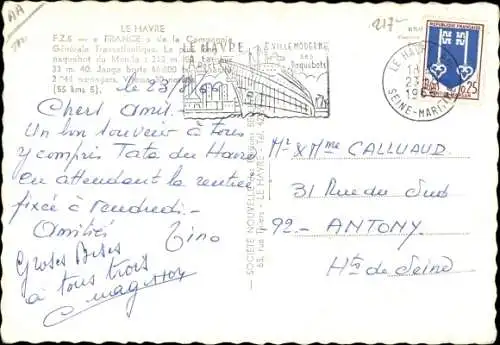 AA
217-
LE HAVRE
F.Z.6 - « FRANCE » de la Compagnie
Générale Transatlantique. Le plus
paquebot du Monde : 315 m
33 m 40. Jauge brute 66.000
(55 kms 5).
LE HAVRE
VILLE MODERNE
ses
Paquebots
LE HAVRE
23
SEINE-MARITIME
REPUBLIQUE FRANÇAISE
0,25
le 23/8/66
Chers Amis.
Un bon souvenir à tous
y compris Tata du Havre
en attendant la rentrée
fixée à vendredi.-
Amitiés
Tino
Groses Bises
à tous trois
SOCIÉTÉ NOUVELLE
65, rue Thiers - LE HAVRE - Tél. 42
Mr & Mme CALLUAUD
31 Rue du Sud
92 - ANTONY
Hts de Seine